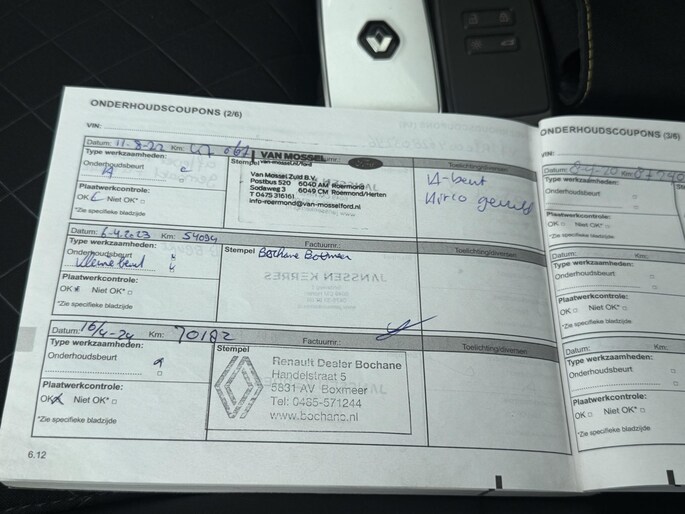 ONDERHOUDSCOUPONS (2/6)
VIN:
Datum: 11-8-22 Km: 47 061
Type werkzaamheden:
Onderhoudsbeurt
A
Plaatwerkcontrole:
OK Niet OK*
*Zie specifieke bladzijde
Stempel
VAN MOSSEL
Van Mossel Zuid B.V.
Postbus 520 6040 AM Roermond
Sodaweg 3 6049 CM Roermond/Herten
T 0475 316161
info-roermond@van-mosselford.nl
Toelichting/diversen:
A-beurt
Airco
Datum: 6-4-2023 Km: 54094
Factuurnr.:
Toelichting/diversen:
Type werkzaamheden:
Onderhoudsbeurt
Kleine beurt
Plaatwerkcontrole:
OK Niet OK*
*Zie specifieke bladzijde
Stempel Bochane Boxmeer
JANSSEN KERRES
Datum: 16/4-24 Km: 70182
Factuurnr.:
Toelichting/diversen:
Type werkzaamheden:
Onderhoudsbeurt
Plaatwerkcontrole:
OK Niet OK*
*Zie specifieke bladzijde
Stempel
Renault Dealer Bochane
Handelstraat 5
5831 AV Boxmeer
Tel: 0485-571244
www.bochane.nl
6.12
ONDERHOUDSCOUPONS (3/6)
VIN:
Datum: Km:
Type werkzaamheden:
Onderhoudsbeurt
Plaatwerkcontrole:
OK Niet OK*
*Zie specifieke bladzijde
Datum: Km:
Type werkzaamheden:
Onderhoudsbeurt
Plaatwerkcontrole:
OK Niet OK*
*Zie specifieke bladzijde
Datum: Km:
Type werkzaamheden:
Onderhoudsbeurt
Plaatwerkcontrole:
OK Niet OK*
*Zie specifieke bladzijde